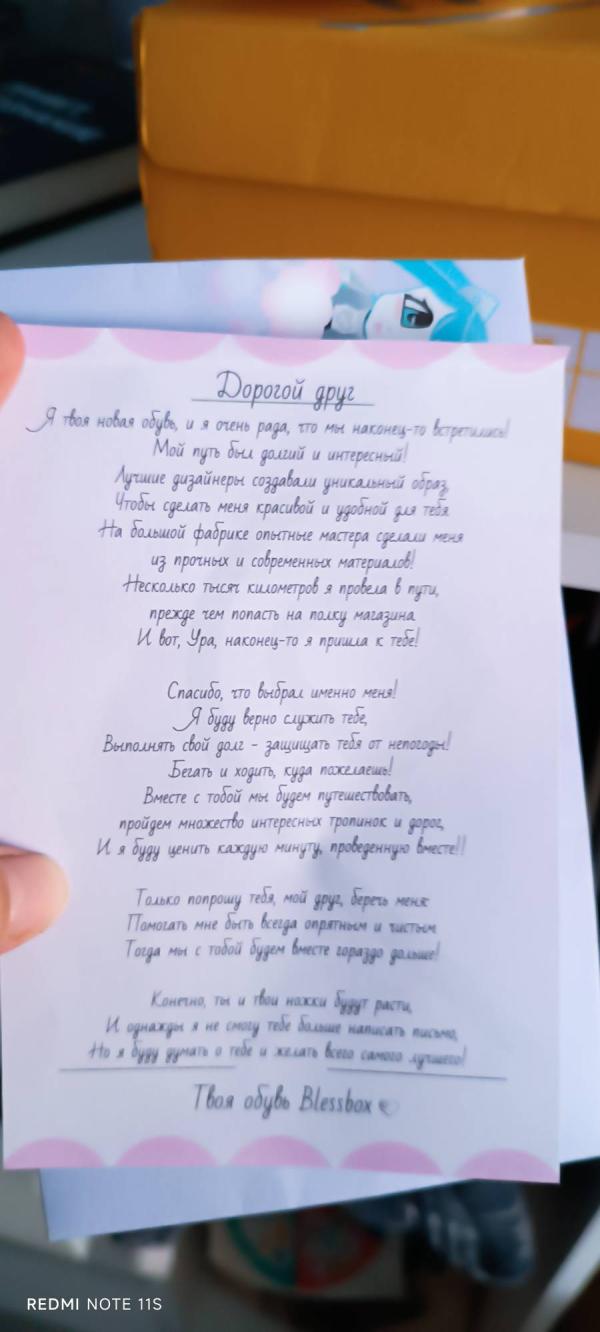 Дорогой друг
Я твоя новая обувь, и я очень рада, что мы наконец-то встретились!
Мой путь был долгий и интересный!
Лучшие дизайнеры создавали уникальный образ,
Чтобы сделать меня красивой и удобной для тебя.
На большой фабрике опытные мастера сделали меня
из прочных и современных материалов!
Несколько тысяч километров я провела в пути,
прежде чем попасть на полку магазина.
И вот, Ура, наконец-то я пришла к тебе!
Спасибо, что выбрал именно меня!
Я буду верно служить тебе,
Выполнять свой долг - защищать тебя от непогоды!
Бегать и ходить, куда пожелаешь!
Вместе с тобой мы будем путешествовать,
пройдем множество интересных тропинок и дорог,
И я буду ценить каждую минуту, проведенную вместе!!
Только попрошу тебя, мой друг, беречь меня:
Помогать мне быть всегда опрятным и чистым.
Тогда мы с тобой будем вместе гораздо дольше!
Конечно, ты и твои ножки будут расти,
И однажды я не смогу тебе больше написать письмо,
Но я буду думать о тебе и желать всего самого лучшего!
Твоя обувь Blessbox
REDMI NOTE 11S